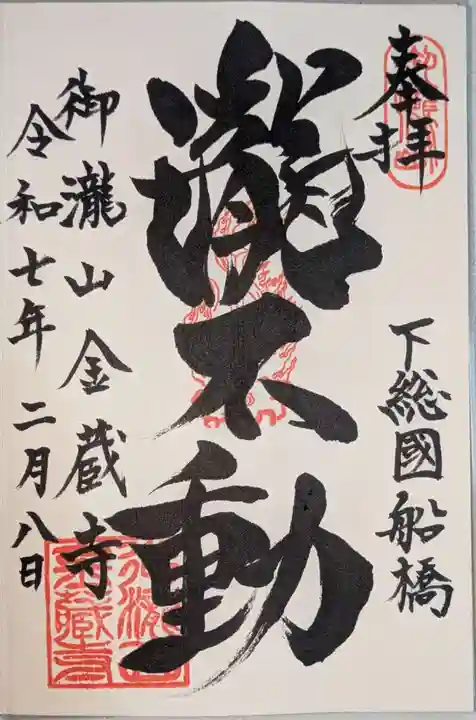 奉拝
下総國船橋
瀧不動
御瀧山金蔵寺
令和七年二月八日